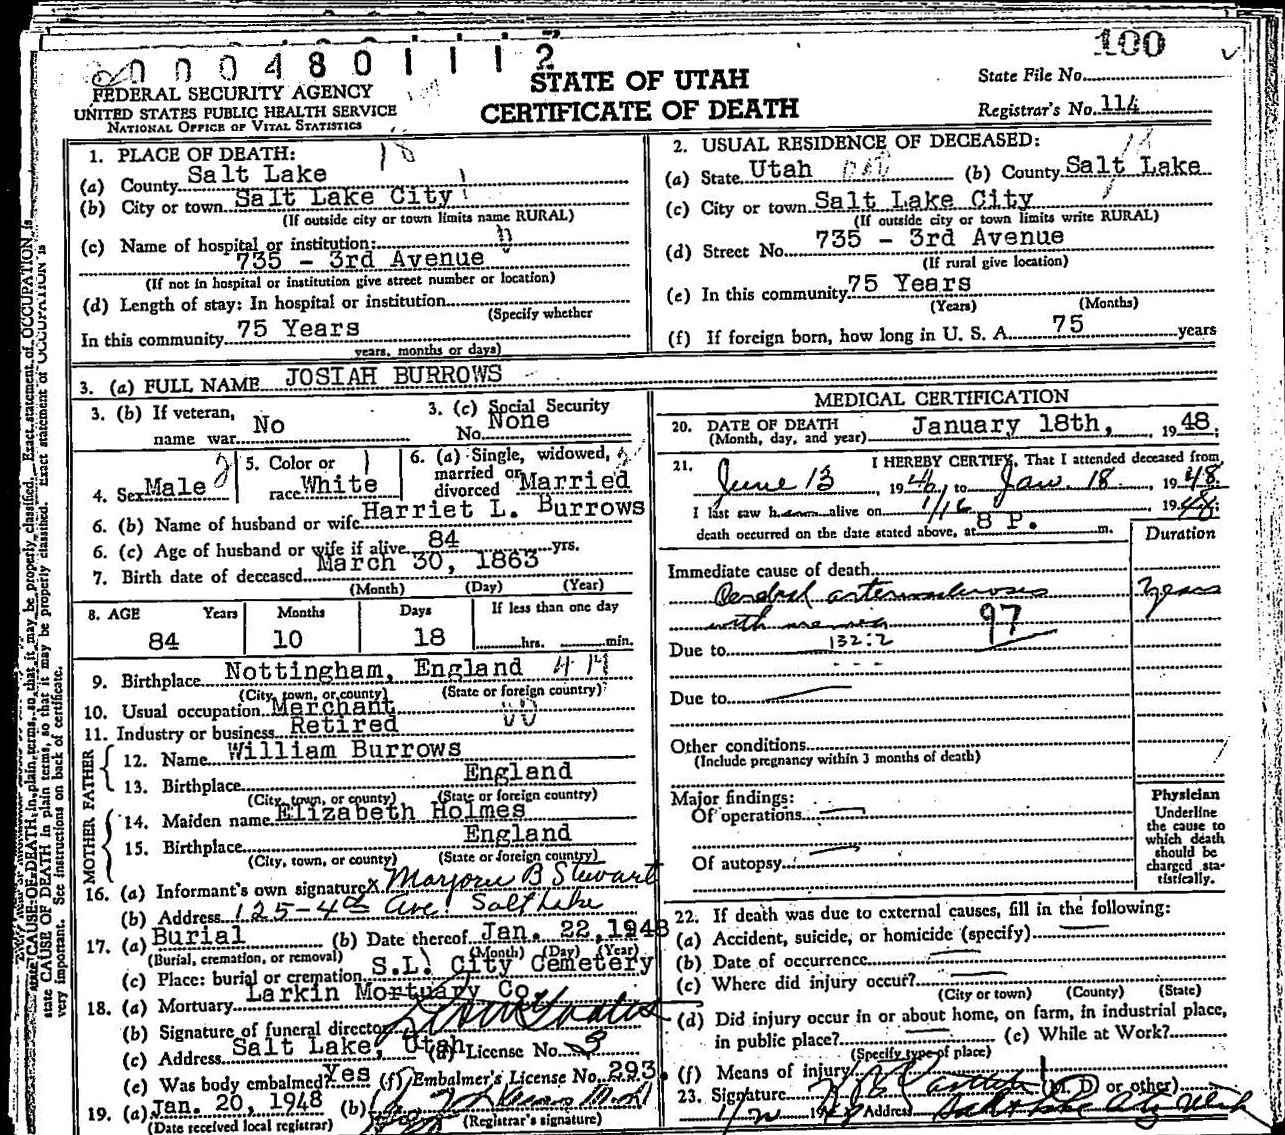 0 0 0 4 8 0 1 1 1 2
100
FEDERAL SECURITY AGENCY
UNITED STATES PUBLIC HEALTH SERVICE
NATIONAL OFFICE OF VITAL STATISTICS
STATE OF UTAH
CERTIFICATE OF DEATH
State File No.
Registrar's No. 114
1. PLACE OF DEATH:
(a) County Salt Lake
(b) City or town Salt Lake City
(If outside city or town limits name RURAL)
(c) Name of hospital or institution:
735 - 3rd Avenue
(If not in hospital or institution give street number or location)
(d) Length of stay: In hospital or institution
(Specify whether
In this community 75 Years
years, months or days)
2. USUAL RESIDENCE OF DECEASED:
(a) State Utah (b) County Salt Lake
(c) City or town Salt Lake City
(If outside city or town limits write RURAL)
(d) Street No. 735 - 3rd Avenue
(If rural give location)
(e) In this community 75 Years
(Years) (Months)
(f) If foreign born, how long in U. S. A. 75 years
3. (a) FULL NAME JOSIAH BURROWS
3. (b) If veteran, name war No
3. (c) Social Security No. None
4. Sex Male
5. Color or race White
6. (a) Single, widowed, married or divorced Married
6. (b) Name of husband or wife Harriet L. Burrows
6. (c) Age of husband or wife if alive 84 yrs.
7. Birth date of deceased March 30, 1863
(Month) (Day) (Year)
8. AGE Years Months Days If less than one day
84 10 18 hrs. min.
9. Birthplace Nottingham, England
(City, town, or county) (State or foreign country)
10. Usual occupation Merchant
11. Industry or business Retired
FATHER
12. Name William Burrows
13. Birthplace England
(City, town, or county) (State or foreign country)
MOTHER
14. Maiden name Elizabeth Holmes
15. Birthplace England
(City, town, or county) (State or foreign country)
16. (a) Informant's own signature x Marjorie B Stewart
(b) Address 125-4th Ave. Salt Lake
17. (a) Burial (b) Date thereof Jan. 22, 1948
(Burial, cremation, or removal) (Month) (Day) (Year)
(c) Place: burial or cremation S.L. City Cemetery
18. (a) Mortuary Larkin Mortuary Co.
(b) Signature of funeral director
(c) Address Salt Lake, Utah (d) License No. 3
(e) Was body embalmed? Yes (f) Embalmer's License No. 293.
19. (a) Jan. 20, 1948 (b)
(Date received local registrar) (Registrar's signature)
MEDICAL CERTIFICATION
20. DATE OF DEATH
(Month, day, and year) January 18th, 1948.
21. I HEREBY CERTIFY, That I attended deceased from
June 13, 1946, to Jan. 18 1948.
I last saw h alive on 1/16 1948.
death occurred on the date stated above, at 8 P. m.
Duration
Immediate cause of death
Cerebral arteriosclerosis years
with uremia 97
Due to 132:2
Due to
Other conditions
(Include pregnancy within 3 months of death)
Major findings:
Of operations
Of autopsy
Physician
Underline
the cause to
which death
should be
charged sta-
tistically.
22. If death was due to external causes, fill in the following:
(a) Accident, suicide, or homicide (specify)
(b) Date of occurrence
(c) Where did injury occur?
(City or town) (County) (State)
(d) Did injury occur in or about home, on farm, in industrial place,
in public place? (e) While at Work?
(Specify type of place)
(f) Means of injury
23. Signature (M. D. or other)
Address Salt Lake City Utah
state CAUSE OF DEATH in plain terms, so that it may be properly classified. Exact statement of OCCUPATION is
very important. See instructions on back of certificate.